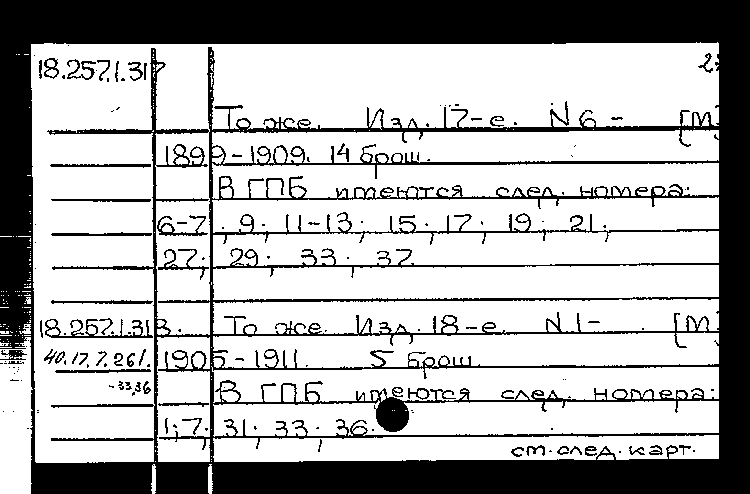 18.257.1.317
То же. Изд. 17-е. N 6- [М
1899-1909. 14 брош.
В ГПБ имеются след. номера:
6-7; 9; 11-13; 15; 17; 19; 21;
27; 29; 33; 37.
18.257.1.318. То же. Изд. 18-е. N.1- [М
40.17.7.261. 1905-1911. 5 брош.
-33,36 В ГПБ имеются след. номера:
1; 7; 31; 33; 36.
см. след. карт.